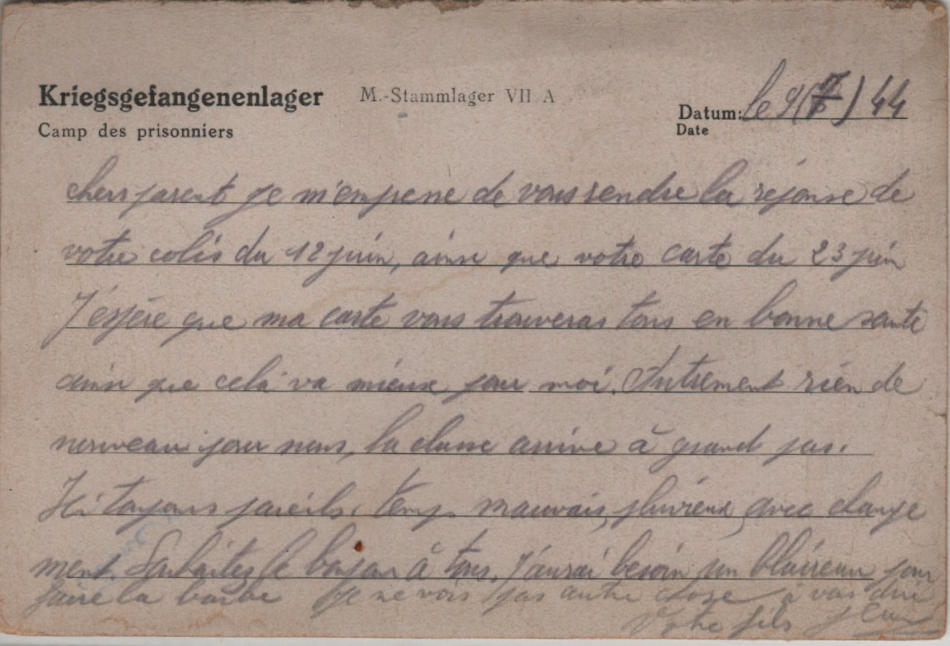 Kriegsgefangenenlager M.-Stammlager VII A
Camp des prisonniers
Datum: le 9(7) 44
Date
chers parent je m'enprese de vous rendre la réponse de
votre colis du 12 juin, ainsi que votre carte du 23 juin
J'éspère que ma carte vous trouveras tous en bonne santé
ainsi que celà va mieux pour moi. Autrement rien de
nouveau pour nous, la classe arrive à grand pas.
Ici toujours pareils, temps mauvais, pluvieux, avec change
ment. Souhaitez le bonjour à tous. J'aurai besoin un blaireau pour
faire la barbe je ne vois pas autre chose à vous dire
Votre fils